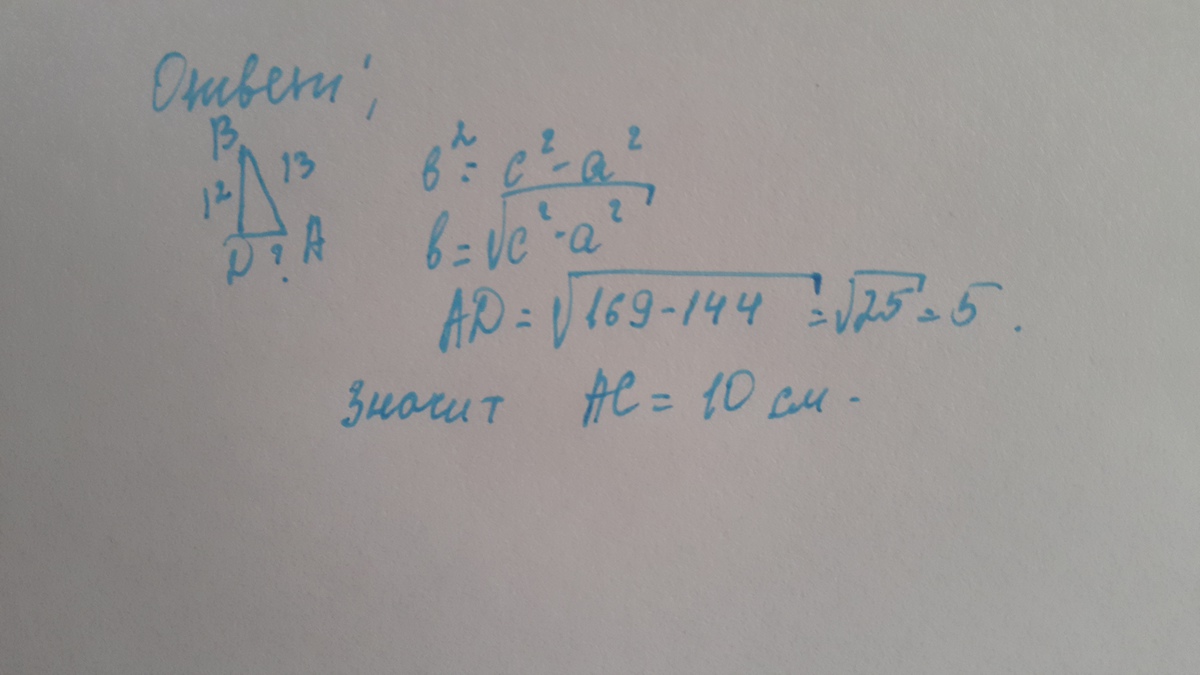 Ответ:
B
12 13
D ? A
в² = c² - a²
в = √c² - a²
AD = √169 - 144 = √25 = 5.
Значит AC = 10 см.